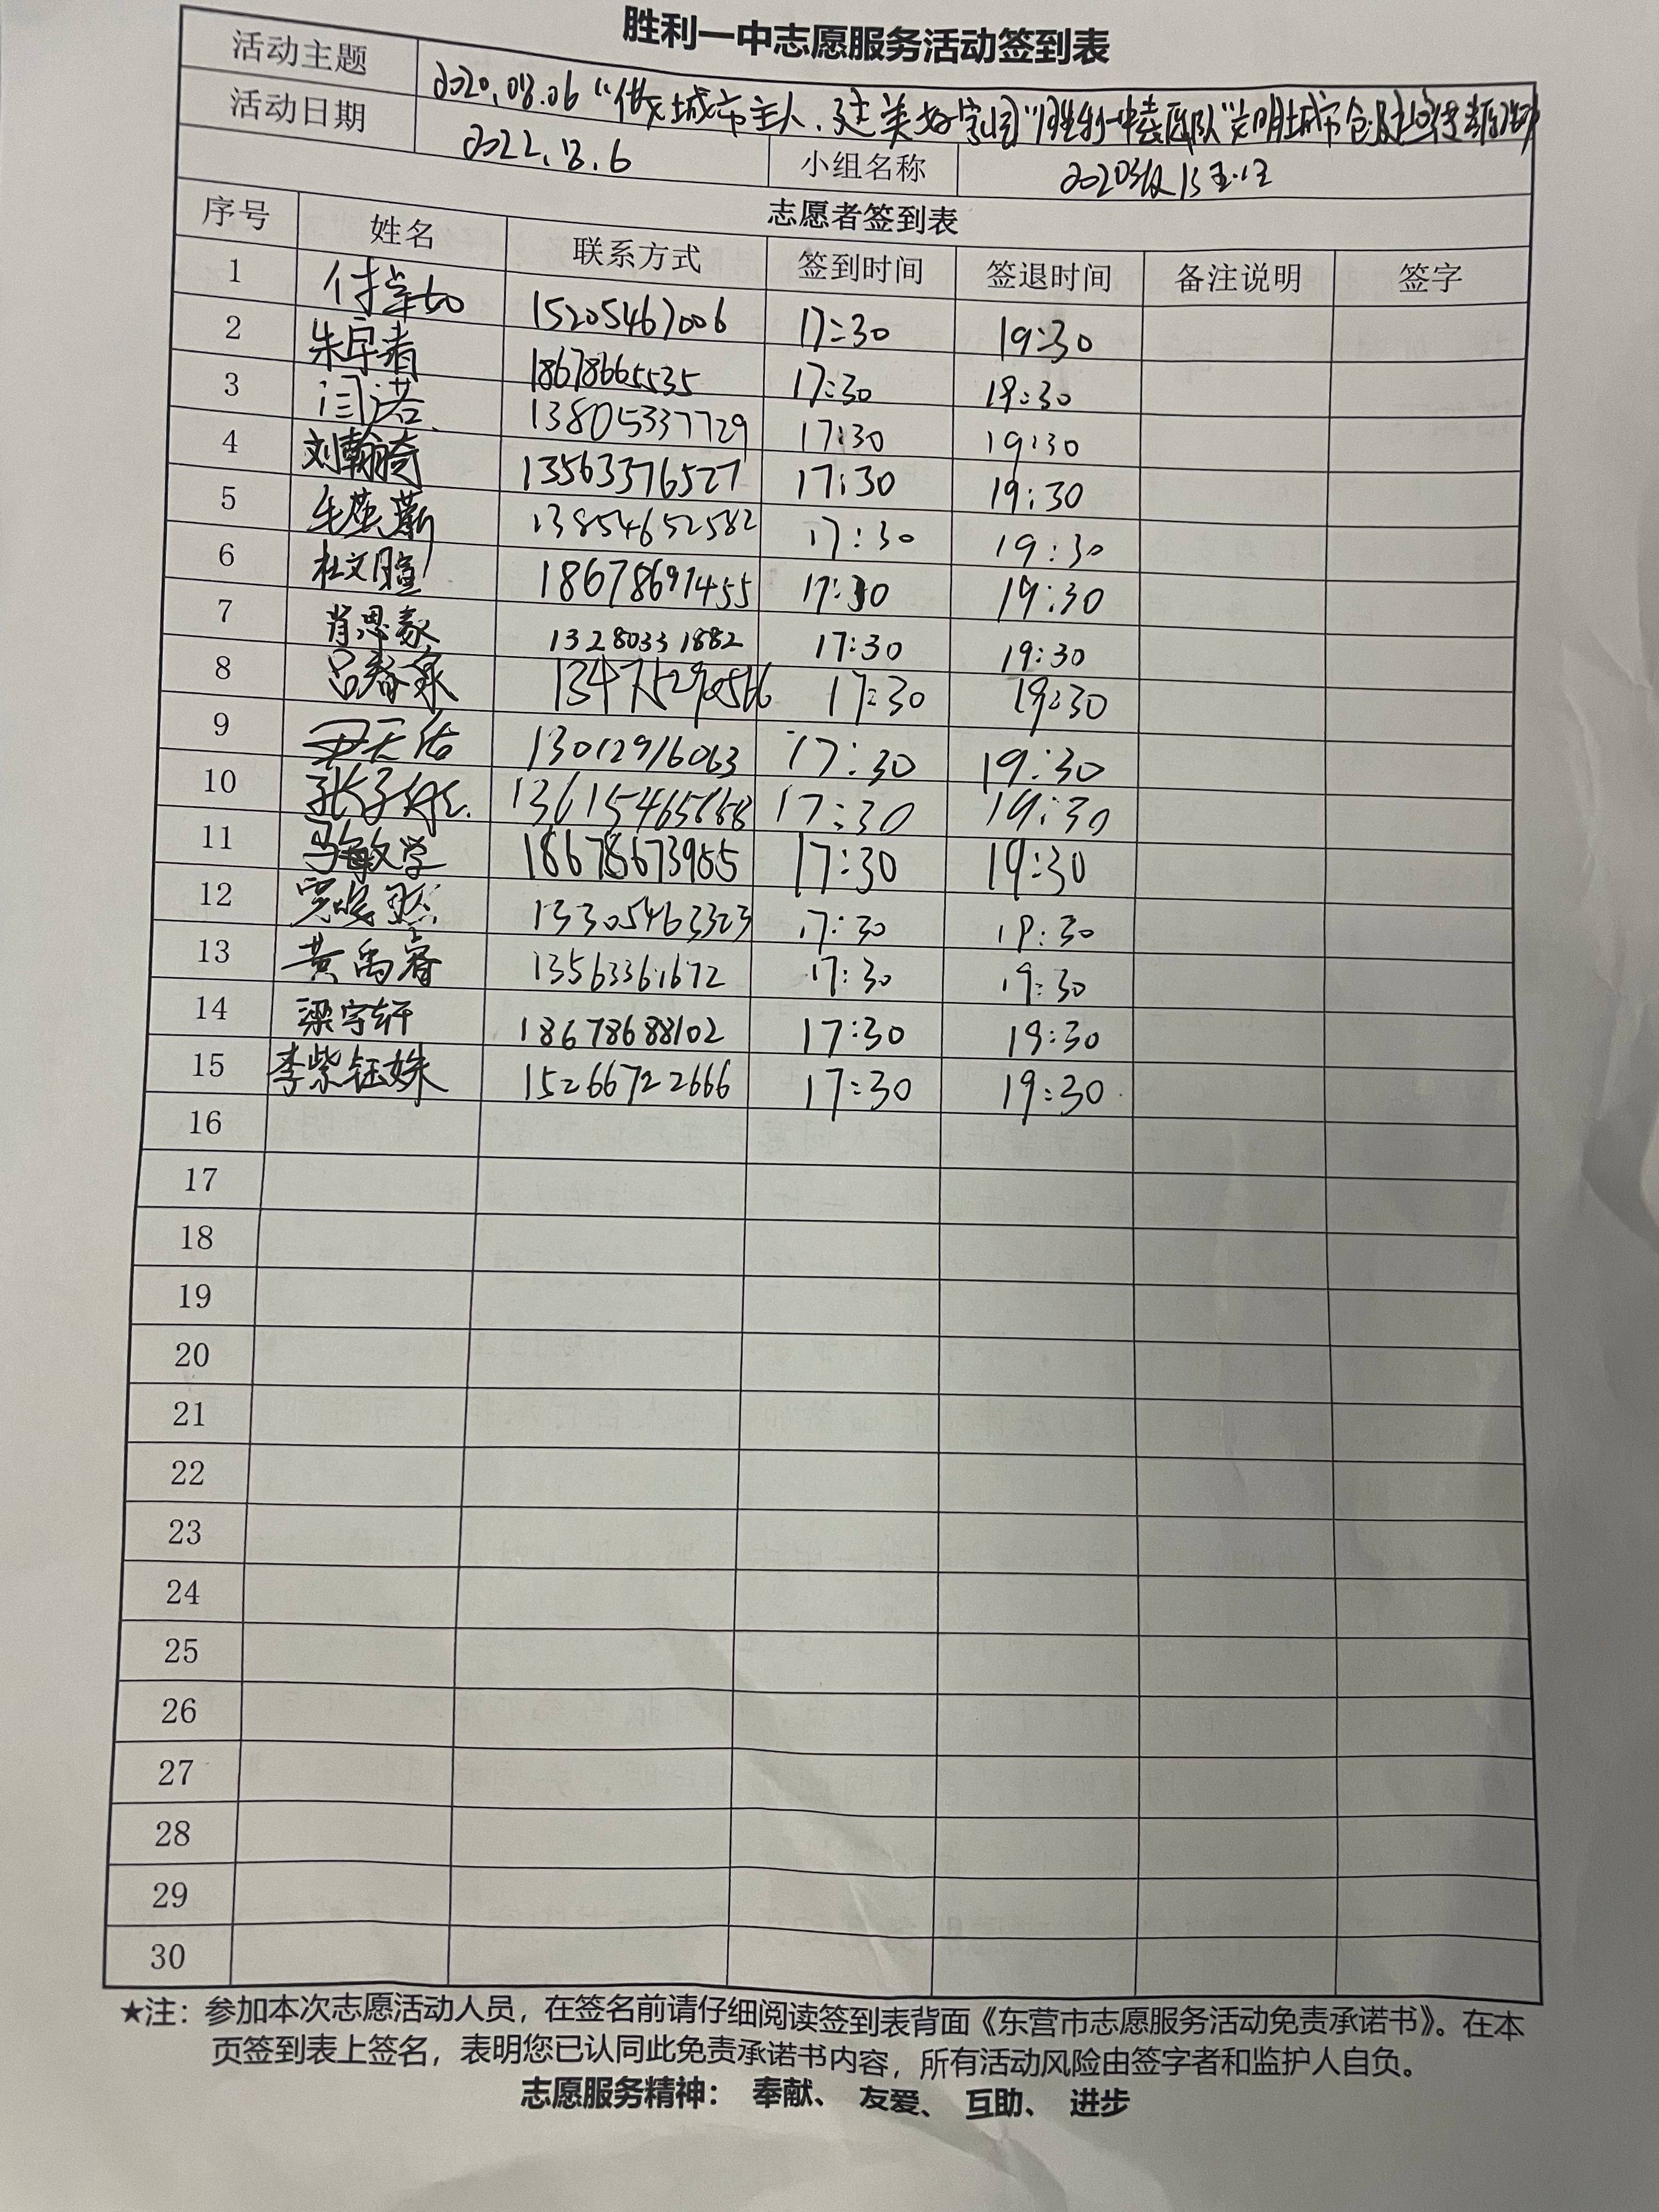 胜利一中志愿服务活动签到表
活动主题 2020.08.06“做城市主人、建美好家园”
活动日期 2022.8.6 小组名称 2020级
志愿者签到表
序号 姓名 联系方式 签到时间 签退时间 备注说明 签字
1 15205467006 17:30 19:30
2 18678665535 17:30 19:30
3 闫诺 13805337729 17:30 19:30
4 刘翰琦 13563376527 17:30 19:30
5 13854652582 17:30 19:30
6 杜文暄 18678691455 17:30 19:30
7 肖思豪 13280331882 17:30 19:30
8 吕春泉 17:30 19:30
9 尹天佑 13012916063 17:30 19:30
10 17:30 19:30
11 马敏学 18678673955 17:30 19:30
12 13305463323 17:30 19:30
13 黄禹睿 13563361672 17:30 19:30
14 梁宇轩 18678688102 17:30 19:30
15 李紫钰姝 15266722666 17:30 19:30
16
17
18
19
20
21
22
23
24
25
26
27
28
29
30
★注：参加本次志愿活动人员，在签名前请仔细阅读签到表背面《东营市志愿服务活动免责承诺书》。在本
页签到表上签名，表明您已认同此免责承诺书内容，所有活动风险由签字者和监护人自负。
志愿服务精神： 奉献、 友爱、 互助、 进步